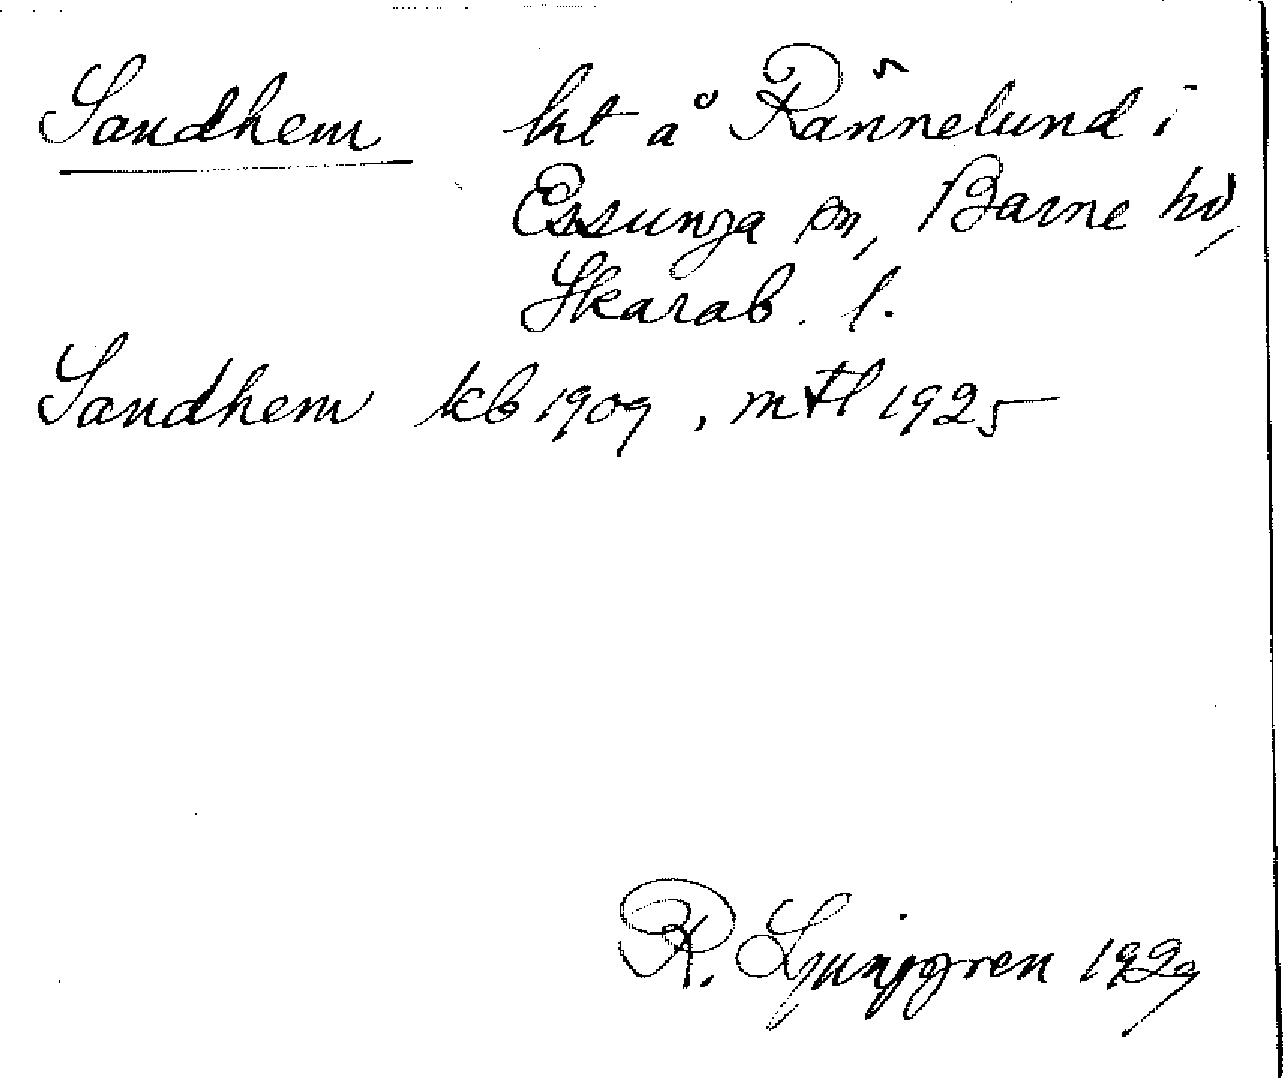 Sandhem kt å Rännelund i
Essunga sn, Barne hd,
Skarab. l.
Sandhem kb 1909, mtl 1925
R. Ljunggren 1929